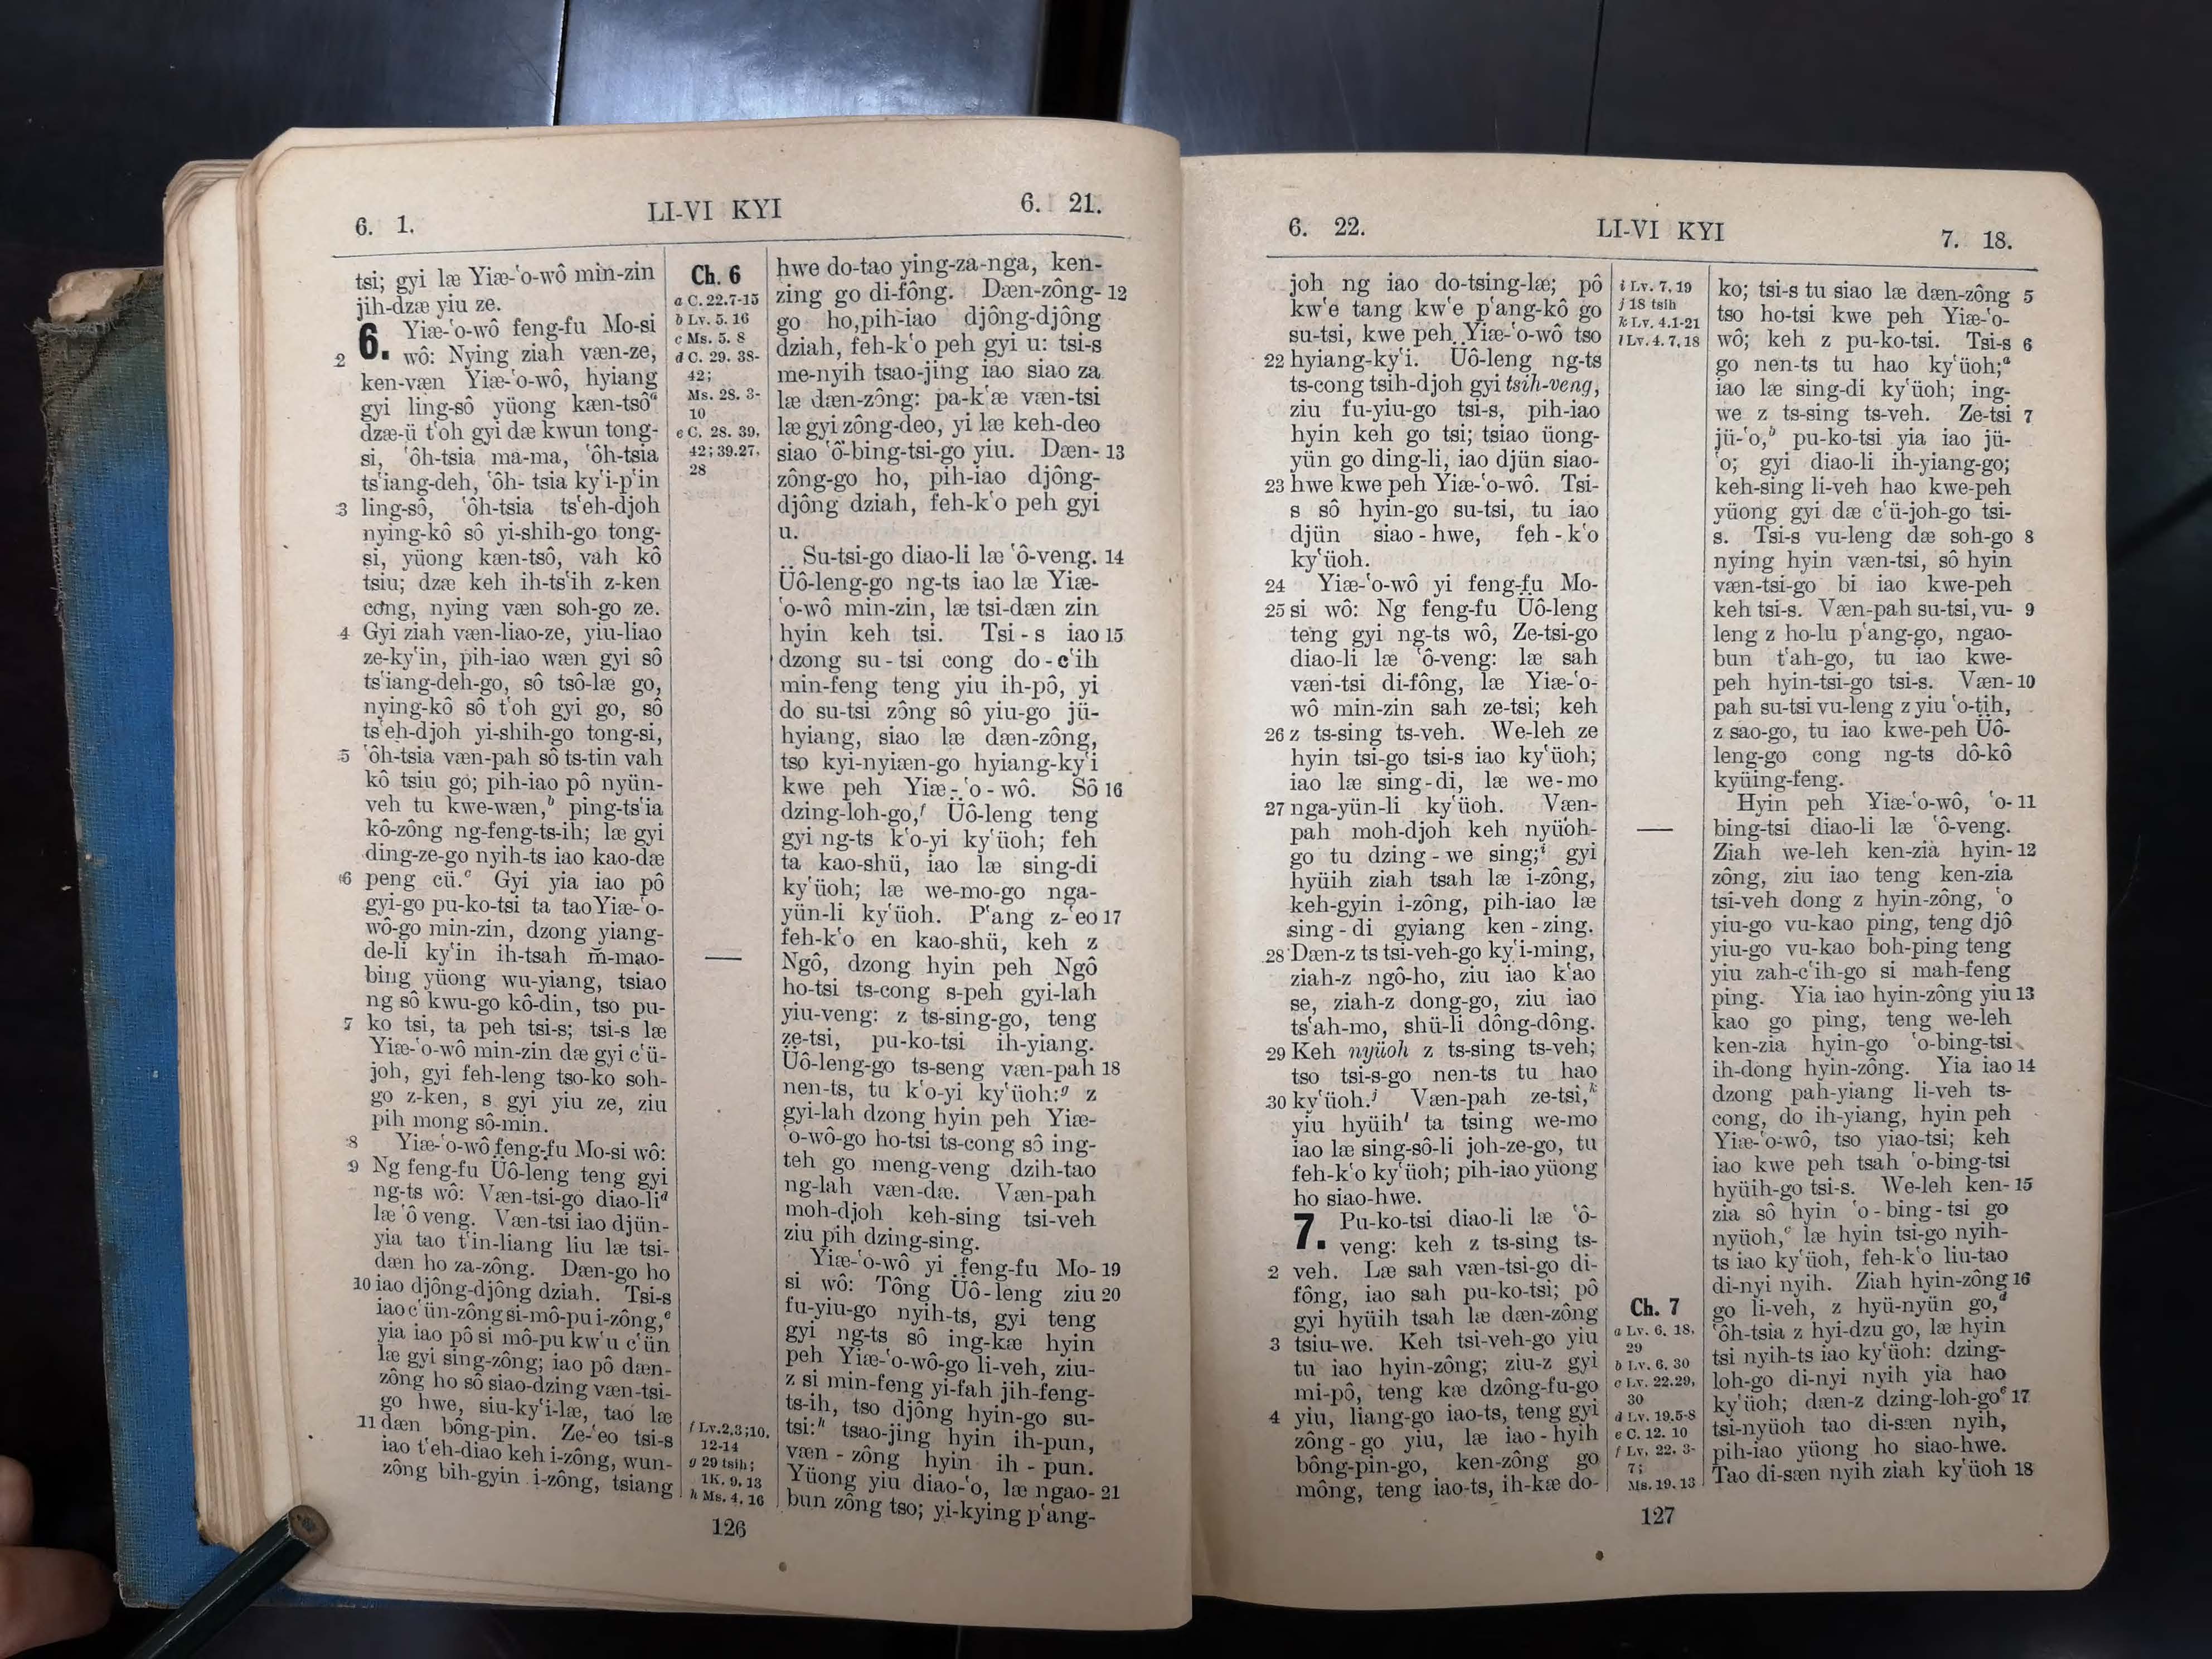 6. 1.
LI-VI KYI
6. 21.
tsi; gyi læ Yiæ-ʻo-wô min-zin
jih-dzæ yiu ze.
6. Yiæ-ʻo-wô feng-fu Mo-si
2 wô: Nying ziah væn-ze,
ken-væn Yiæ-ʻo-wô, hyiang
gyi ling-sô yüong kæn-tsôᵃ
dzæ-ü tʻoh gyi dæ kwun tong-
si, ʻôh-tsia ma-ma, ʻôh-tsia
tsʻiang-deh, ʻôh- tsia kyʻi-pʻin
3 ling-sô, ʻôh-tsia tsʻeh-djoh
nying-kô sô yi-shih-go tong-
si, yüong kæn-tsô, vah kô
tsiu; dzæ keh ih-tsʻih z-ken
cong, nying væn soh-go ze.
4 Gyi ziah væn-liao-ze, yiu-liao
ze-kyʻin, pih-iao wæn gyi sô
tsʻiang-deh-go, sô tsô-læ go,
nying-kô sô tʻoh gyi go, sô
tsʻeh-djoh yi-shih-go tong-si,
5 ʻôh-tsia væn-pah sô ts-tin vah
kô tsiu go; pih-iao pô nyün-
veh tu kwe-wæn,ᵇ ping-tsʻia
kô-zông ng-feng-ts-ih; læ gyi
ding-ze-go nyih-ts iao kao-dæ
6 peng cü.ᶜ Gyi yia iao pô
gyi-go pu-ko-tsi ta tao Yiæ-ʻo-
wô-go min-zin, dzong yiang-
de-li kyʻin ih-tsah m̆-mao-
bing yüong wu-yiang, tsiao
ng sô kwu-go kô-din, tso pu-
7 ko tsi, ta peh tsi-s; tsi-s læ
Yiæ-ʻo-wô min-zin dæ gyi cʻü-
joh, gyi feh-leng tso-ko soh-
go z-ken, s gyi yiu ze, ziu
pih mong sô-min.
8 Yiæ-ʻo-wô feng-fu Mo-si wô:
9 Ng feng-fu Üô-leng teng gyi
ng-ts wô: Væn-tsi-go diao-liᵈ
læ ʻô veng. Væn-tsi iao djün-
yia tao tʻin-liang liu læ tsi-
dæn ho za-zông. Dæn-go ho
10 iao djông-djông dziah. Tsi-s
iao cʻün-zông si-mô-pu i-zông,ᵉ
yia iao pô si mô-pu kwʻu cʻün
læ gyi sing-zông; iao pô dæn-
zông ho sô siao-dzing væn-tsi-
go hwe, siu-kyʻi-læ, tao læ
11 dæn bông-pin. Ze-ʻeo tsi-s
iao tʻeh-diao keh i-zông, wun-
zông bih-gyin i-zông, tsiang
Ch. 6
a C. 22.7-15
b Lv. 5. 16
c Ms. 5. 8
d C. 29. 38-
42;
Ms. 28. 3-
10
e C. 28. 39,
42; 39.27,
28
f Lv.2,3;10,
12-14
g 29 tsih;
1K. 9, 13
h Ms. 4, 16
hwe do-tao ying-za-nga, ken-
zing go di-fông. Dæn-zông- 12
go ho,pih-iao djông-djông
dziah, feh-kʻo peh gyi u: tsi-s
me-nyih tsao-jing iao siao za
læ dæn-zông: pa-kʻæ væn-tsi
læ gyi zông-deo, yi læ keh-deo
siao ʻô-bing-tsi-go yiu. Dæn- 13
zông-go ho, pih-iao djông-
djông dziah, feh-kʻo peh gyi
u.
Su-tsi-go diao-li læ ʻô-veng. 14
Üô-leng-go ng-ts iao læ Yiæ-
ʻo-wô min-zin, læ tsi-dæn zin
hyin keh tsi. Tsi - s iao 15
dzong su - tsi cong do - cʻih
min-feng teng yiu ih-pô, yi
do su-tsi zông sô yiu-go jü-
hyiang, siao læ dæn-zông,
tso kyi-nyiæn-go hyiang-kyʻi
kwe peh Yiæ - ʻo - wô. Sô 16
dzing-loh-go,ᶠ Üô-leng teng
gyi ng-ts kʻo-yi kyʻüoh; feh
ta kao-shü, iao læ sing-di
kyʻüoh; læ we-mo-go nga-
yün-li kyʻüoh. Pʻang z-ʻeo 17
feh-kʻo en kao-shü, keh z
Ngô, dzong hyin peh Ngô
ho-tsi ts-cong s-peh gyi-lah
yiu-veng: z ts-sing-go, teng
ze-tsi, pu-ko-tsi ih-yiang.
Üô-leng-go ts-seng væn-pah 18
nen-ts, tu kʻo-yi kyʻüoh:ᵍ z
gyi-lah dzong hyin peh Yiæ-
ʻo-wô-go ho-tsi ts-cong sô ing-
teh go meng-veng dzih-tao
ng-lah væn-dæ. Væn-pah
moh-djoh keh-sing tsi-veh
ziu pih dzing-sing.
Yiæ-ʻo-wô yi feng-fu Mo- 19
si wô: Tông Üô-leng ziu 20
fu-yiu-go nyih-ts, gyi teng
gyi ng-ts sô ing-kæ hyin
peh Yiæ-ʻo-wô-go li-veh, ziu-
z si min-feng yi-fah jih-feng-
ts-ih, tso djông hyin-go su-
tsi:ʰ tsao-jing hyin ih-pun,
væn - zông hyin ih - pun.
Yüong yiu diao-ʻo, læ ngao- 21
bun zông tso; yi-kying pʻang-
126
6. 22.
LI-VI KYI
7. 18.
joh ng iao do-tsing-læ; pô
kwʻe tang kwʻe pʻang-kô go
su-tsi, kwe peh Yiæ-ʻo-wô tso
22 hyiang-kyʻi. Üô-leng ng-ts
ts-cong tsih-djoh gyi tsih-veng,
ziu fu-yiu-go tsi-s, pih-iao
hyin keh go tsi; tsiao üong-
yün go ding-li, iao djün siao-
23 hwe kwe peh Yiæ-ʻo-wô. Tsi-
s sô hyin-go su-tsi, tu iao
djün siao - hwe, feh - kʻo
kyʻüoh.
24 Yiæ-ʻo-wô yi feng-fu Mo-
25 si wô: Ng feng-fu Üô-leng
teng gyi ng-ts wô, Ze-tsi-go
diao-li læ ʻô-veng: læ sah
væn-tsi di-fông, læ Yiæ-ʻo-
wô min-zin sah ze-tsi; keh
26 z ts-sing ts-veh. We-leh ze
hyin tsi-go tsi-s iao kyʻüoh;
iao læ sing-di, læ we-mo
27 nga-yün-li kyʻüoh. Væn-
pah moh-djoh keh nyüoh-
go tu dzing - we sing;ⁱ gyi
hyüih ziah tsah læ i-zông,
keh-gyin i-zông, pih-iao læ
sing - di gyiang ken - zing.
28 Dæn-z ts tsi-veh-go kyʻi-ming,
ziah-z ngô-ho, ziu iao kʻao
se, ziah-z dong-go, ziu iao
tsʻah-mo, shü-li dông-dông.
29 Keh nyüoh z ts-sing ts-veh;
tso tsi-s-go nen-ts tu hao
30 kyʻüoh.ʲ Væn-pah ze-tsi,ᵏ
yiu hyüihˡ ta tsing we-mo
iao læ sing-sô-li joh-ze-go, tu
feh-kʻo kyʻüoh; pih-iao yüong
ho siao-hwe.
7. Pu-ko-tsi diao-li læ ʻô-
veng: keh z ts-sing ts-
2 veh. Læ sah væn-tsi-go di-
fông, iao sah pu-ko-tsi; pô
gyi hyüih tsah læ dæn-zông
3 tsiu-we. Keh tsi-veh-go yiu
tu iao hyin-zông; ziu-z gyi
mi-pô, teng kæ dzông-fu-go
4 yiu, liang-go iao-ts, teng gyi
zông - go yiu, læ iao - hyih
bông-pin-go, ken-zông go
mông, teng iao-ts, ih-kæ do-
i Lv. 7, 19
j 18 tsih
k Lv. 4.1-21
l Lv. 4. 7, 18
Ch. 7
a Lv. 6. 18,
29
b Lv. 6. 30
c Lv. 22.29,
30
d Lv. 19.5-8
e C. 12. 10
f Lv. 22. 3-
7;
Ms. 19. 13
ko; tsi-s tu siao læ dæn-zông 5
tso ho-tsi kwe peh Yiæ-ʻo-
wô; keh z pu-ko-tsi. Tsi-s 6
go nen-ts tu hao kyʻüoh;ᵃ
iao læ sing-di kyʻüoh; ing-
we z ts-sing ts-veh. Ze-tsi 7
jü-ʻo,ᵇ pu-ko-tsi yia iao jü-
ʻo; gyi diao-li ih-yiang-go;
keh-sing li-veh hao kwe-peh
yüong gyi dæ cʻü-joh-go tsi-
s. Tsi-s vu-leng dæ soh-go 8
nying hyin væn-tsi, sô hyin
væn-tsi-go bi iao kwe-peh
keh tsi-s. Væn-pah su-tsi, vu- 9
leng z ho-lu pʻang-go, ngao-
bun tʻah-go, tu iao kwe-
peh hyin-tsi-go tsi-s. Væn- 10
pah su-tsi vu-leng z yiu ʻo-tih,
z sao-go, tu iao kwe-peh Üô-
leng-go cong ng-ts dô-kô
kyüing-feng.
Hyin peh Yiæ-ʻo-wô, ʻo- 11
bing-tsi diao-li læ ʻô-veng.
Ziah we-leh ken-zia hyin- 12
zông, ziu iao teng ken-zia
tsi-veh dong z hyin-zông, ʻo
yiu-go vu-kao ping, teng djô
yiu-go vu-kao boh-ping teng
yiu zah-cʻih-go si mah-feng
ping. Yia iao hyin-zông yiu 13
kao go ping, teng we-leh
ken-zia hyin-go ʻo-bing-tsi
ih-dong hyin-zông. Yia iao 14
dzong pah-yiang li-veh ts-
cong, do ih-yiang, hyin peh
Yiæ-ʻo-wô, tso yiao-tsi; keh
iao kwe peh tsah ʻo-bing-tsi
hyüih-go tsi-s. We-leh ken- 15
zia sô hyin ʻo - bing - tsi go
nyüoh,ᶜ læ hyin tsi-go nyih-
ts iao kyʻüoh, feh-kʻo liu-tao
di-nyi nyih. Ziah hyin-zông 16
go li-veh, z hyü-nyün go,ᵈ
ʻôh-tsia z hyi-dzu go, læ hyin
tsi nyih-ts iao kyʻüoh: dzing-
loh-go di-nyi nyih yia hao
kyʻüoh; dæn-z dzing-loh-goᵉ 17
tsi-nyüoh tao di-sæn nyih,
pih-iao yüong ho siao-hwe.
Tao di-sæn nyih ziah kyʻüoh 18
127